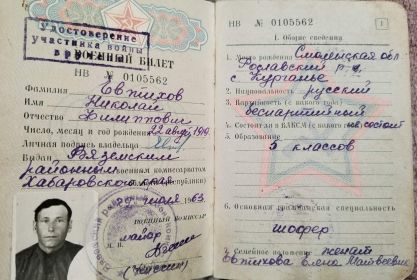 Удостоверение
участника войны
вручено
ВОЕННЫЙ БИЛЕТ
НВ № 0105562
Фамилия Евтихов
Имя Николай
Отчество Филиппович
Число, месяц и год рождения 22 августа 1919
Личная подпись владельца
Выдан Вяземским
районным военным комиссариатом
Хабаровского края
июля 1963
Военный комиссар
майор
М. П.
НВ № 0105562
1
I. Общие сведения
1. Место рождения Смоленская обл
Рославский р-н
с Курганье
2. Национальность русский
3. Партийность (с какого года)
беспартийный
4. Состоит ли в ВЛКСМ (с какого года) не состоит
5. Образование
5 классов
6. Основная гражданская специальность
шофер
7. Семейное положение женат
Евтихова Елена Матвеевна